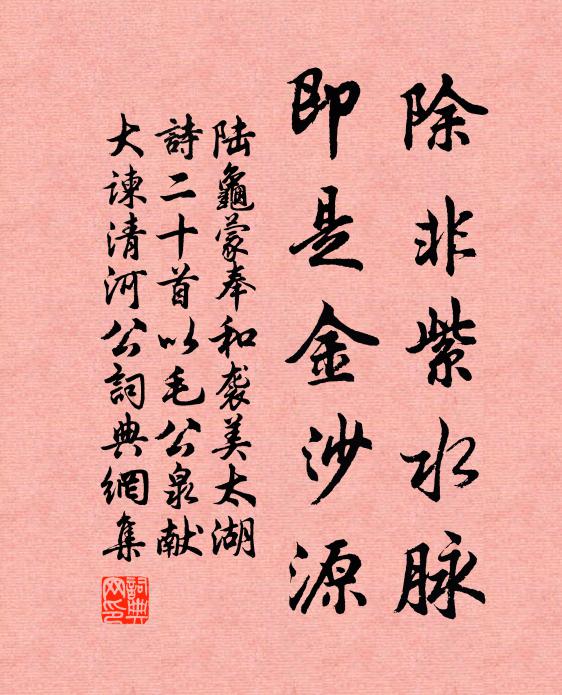 除非紫水脉
即是金沙源
陆龜蒙奉和袭美太湖
詩二十首以毛公泉献
大谏清河公詞典網集
詞典网印